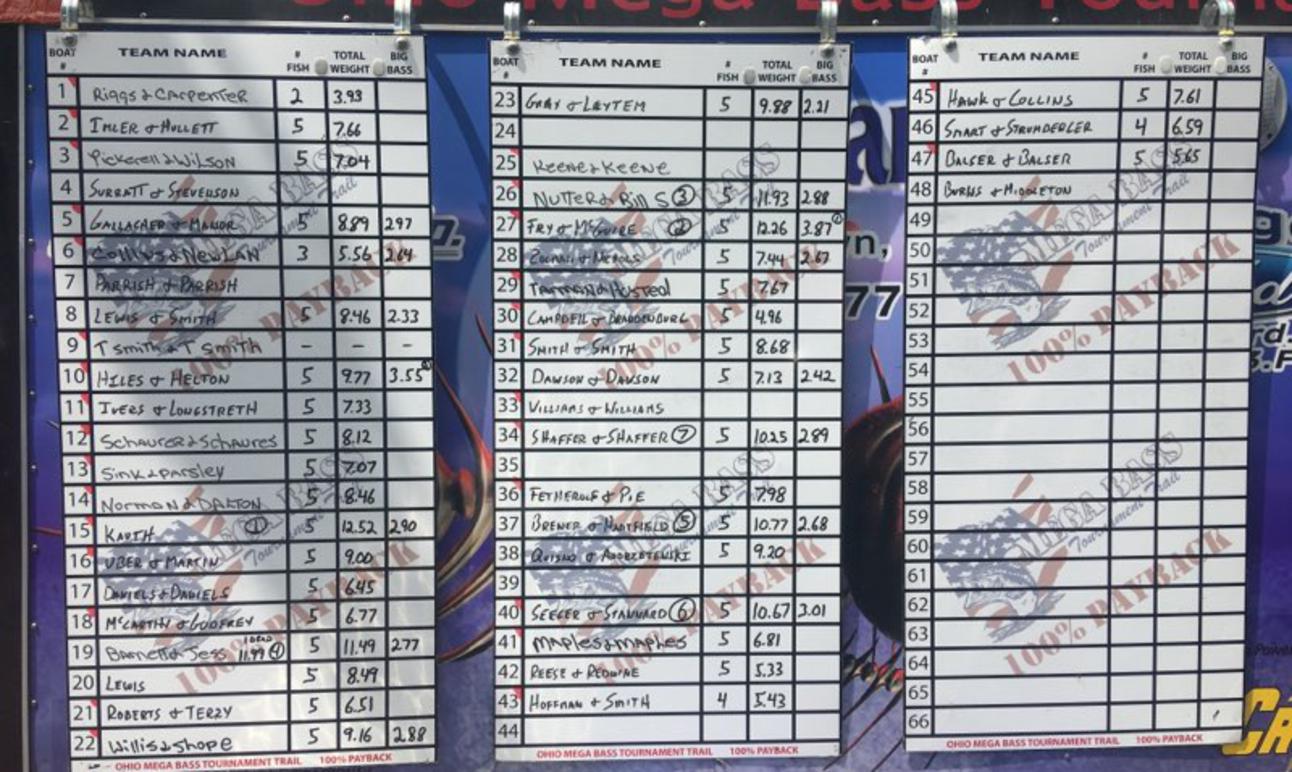 Ohio Mega Bass Tourna
BOAT # TEAM NAME # FISH TOTAL WEIGHT BIG BASS
1 Riggs & Carpenter 2 3.93
2 Imler & Hullett 5 7.66
3 Pickerell & Wilson 5 7.04
4 Surratt & Stevenson
5 Gallagher & Manor 5 8.89 297
6 Collins & Newlan 3 5.56 264
7 Parrish & Parrish
8 Lewis & Smith 5 8.46 2.33
9 T smith & T smith - - -
10 Hiles & Helton 5 9.77 3.55
11 Ivers & Longstreth 5 7.33
12 Schaurer & Schaures 5 8.12
13 Sink & parsley 5 7.07
14 Norman & Dalton 5 8.46
15 Kauth 1 5 12.52 290
16 Uber & Martin 5 9.00
17 Daniels & Daniels 5 6.45
18 McCarthy & Godfrey 5 6.77
19 Barnett & Jess 1 dead 11.99 4 5 11.49 2.77
20 Lewis 5 8.49
21 Roberts & Terzy 5 6.51
22 Willis & shope 5 9.16 2.88
OHIO MEGA BASS TOURNAMENT TRAIL 100% PAYBACK
BOAT # TEAM NAME # FISH TOTAL WEIGHT BIG BASS
23 Gray & Laytem 5 9.88 2.21
24
25 Keene & Keene
26 Nutter & Bill S 3 5 11.93 288
27 Fry & McGuire 2 5 12.26 3.87
28 5 7.44 2.67
29 5 7.67
30 Campbell & Braddenburg 5 4.96
31 Smith & Smith 5 8.68
32 Dawson & Dawson 5 7.13 242
33 Williams & Williams
34 Shaffer & Shaffer 7 5 10.25 2.89
35
36 Fetherolf & Pie 5 7.98
37 Brener & Hartfield 5 5 10.77 2.68
38 5 9.20
39
40 Seeger & Stannard 6 5 10.67 3.01
41 Maples & maples 5 6.81
42 Reese & Redwine 5 5.33
43 Hoffman & Smith 4 5.43
44
OHIO MEGA BASS TOURNAMENT TRAIL 100% PAYBACK
BOAT # TEAM NAME # FISH TOTAL WEIGHT BIG BASS
45 Hawk & Collins 5 7.61
46 Smart & 4 6.59
47 Balser & Balser 5 5.65
48 Burns & Middleton
49
50
51
52
53
54
55
56
57
58
59
60
61
62
63
64
65
66
OHIO MEGA BASS TOURNAMENT TRAIL 100% PAYBACK
MEGA BASS
Tournament Trail
100% PAYBACK
77